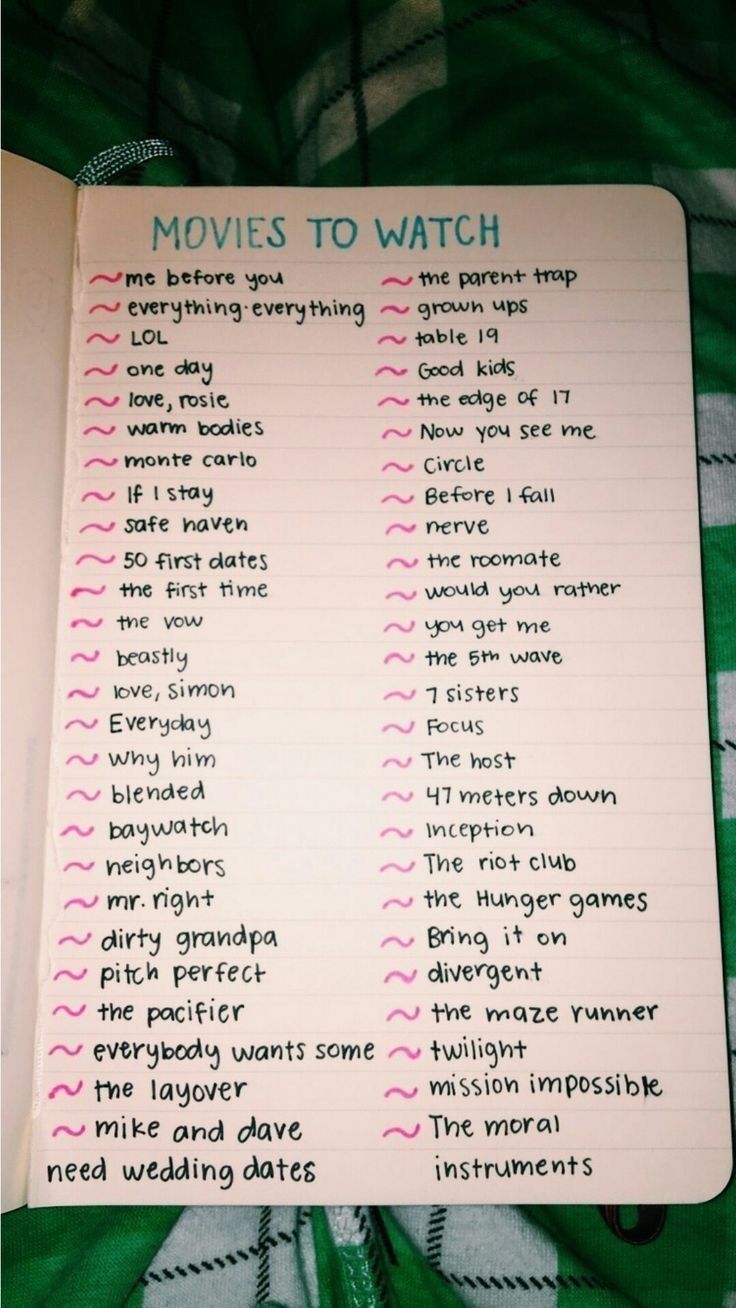 MOVIES TO WATCH
~me before you
~ everything·everything
~ LOL
~ one day
~ love, rosie
~ warm bodies
~ monte carlo
~ If I stay
~ safe haven
~ 50 first dates
~ the first time
~ the vow
~ beastly
~ love, simon
~ Everyday
~ why him
~ blended
~ baywatch
~ neighbors
~ mr. right
~ dirty grandpa
~ pitch perfect
~ the pacifier
~ everybody wants some
~ the layover
~ mike and dave
need wedding dates
~ the parent trap
~ grown ups
~ table 19
~ Good kids
~ the edge of 17
~ Now you see me
~ Circle
~ Before I fall
~ nerve
~ the roomate
~ would you rather
~ you get me
~ the 5th wave
~ 7 sisters
~ Focus
~ The host
~ 47 meters down
~ Inception
~ The riot club
~ the Hunger games
~ Bring it on
~ divergent
~ the maze runner
~ twilight
~ mission impossible
~ The moral
instruments